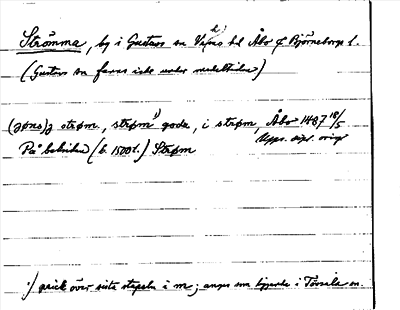 Strömma, by i Gustavs sn Vemo hd Åbo o Björneborgs l.
(Gustavs sn fanns icke under medeltiden)
(jøns) j strøm, strøm¹⁾ godz, i strøm, Åbo 1487 18/5
Upps. dipl. orig
På baksidan (b. 1500 t.) Strøm
¹⁾ prick över sista stapeln i m; anges som liggande i Töfsala sn.